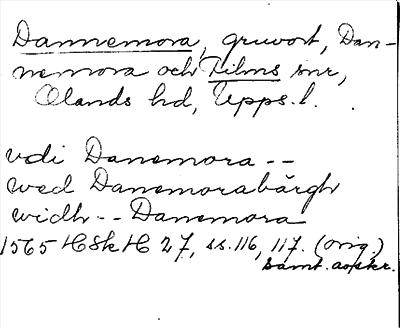 Dannemora, gruvort, Dan-
nemora och Films snr,
Olands hd, Upps. l.
vdi Danemora --
wed Danemorabärgh
widh -- Danemora
1565 HSkH 27, ss. 116, 117. (orig.)
samt. avskr.